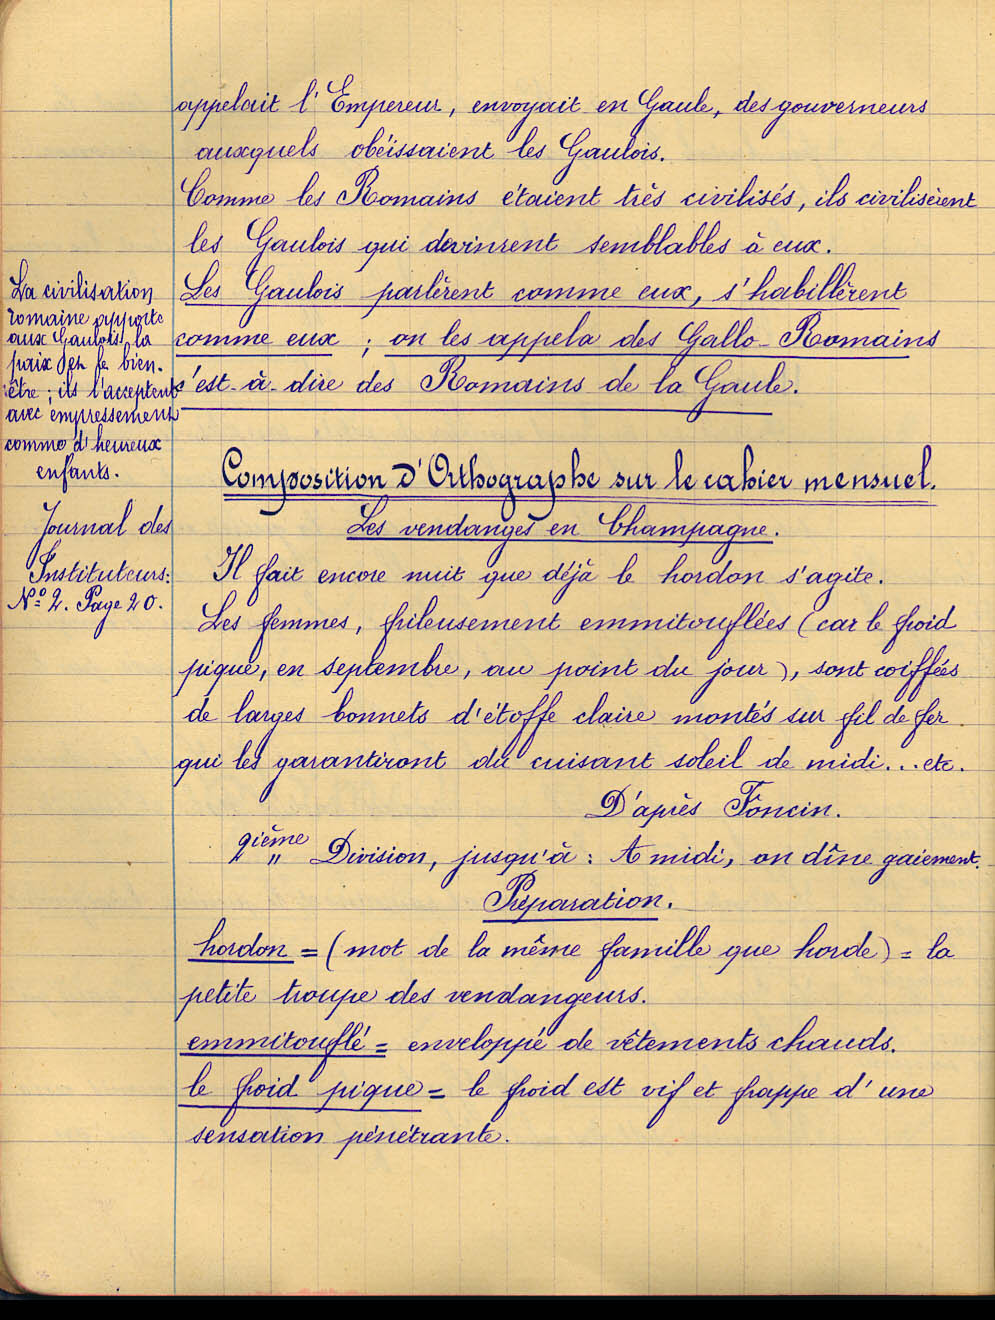 appelait l'Empereur, envoyait en Gaule, des gouverneurs
auxquels obéissaient les Gaulois.
Comme les Romains étaient très civilisés, ils civilisèrent
les Gaulois qui devinrent semblables à eux.
Les Gaulois parlèrent comme eux, s'habillèrent
comme eux ; on les appela des Gallo-Romains
c'est-à-dire des Romains de la Gaule.
La civilisation
romaine apporte
aux Gaulois la
paix et le bien-
être ; ils l'acceptent
avec empressement
comme d'heureux
enfants.
Composition d'Orthographe sur le cahier mensuel.
Journal des
Instituteurs:
N° 2. Page 20.
Les vendanges en Champagne.
Il fait encore nuit que déjà le hordon s'agite.
Les femmes, frileusement emmitouflées (car le froid
pique, en septembre, au point du jour), sont coiffées
de larges bonnets d'étoffe claire montés sur fil de fer
qui les garantiront du cuisant soleil de midi...etc.
D'après Foncin.
2ième Division, jusqu'à : A midi, on dîne gaiement.
Préparation.
hordon = (mot de la même famille que horde) = la
petite troupe des vendangeurs.
emmitouflé = enveloppé de vêtements chauds.
le froid pique = le froid est vif et frappe d'une
sensation pénétrante.